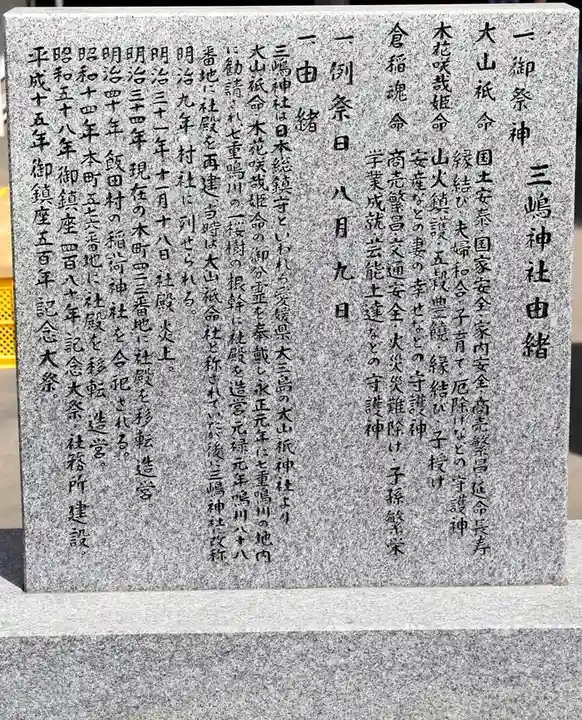 三嶋神社由緒
一、御祭神
大山祇命 国土安泰・国家安全・家内安全・商売繁昌・延命長寿
縁結び・夫婦和合・子育て・厄除けなどの守護神
木花咲哉姫命 山火鎮護・五穀豊饒・縁結び・子授け
安産などの妻の幸せなどの守護神
倉稲魂命 商売繁昌・交通安全・火災災難除け・子孫繁栄
学業成就・芸能上達などの守護神
一、例祭日 八月九日
一、由緒
三嶋神社は日本総鎮守といわれる愛媛県大三島の大山祇神社より
大山祇命・木花咲哉姫命の御分霊を奉戴し永正元年に七重鳴川の地内
に勧請され七重鳴川の一桜樹の根幹に社殿を造営・元禄元年鳴川八十八
番地に社殿を再建、当時は大山祇命社と称されていたが後に三嶋神社改称
明治九年村社に列せられる。
明治三十一年十一月十八日社殿炎上。
明治三十四年現在の本町四二三番地に社殿を移転造営。
明治四十年飯田村の稲荷神社を合祀される。
昭和十四年本町五七六番地に社殿を移転造営。
昭和五十八年御鎮座四百八十年記念大祭・社務所建設
平成十五年御鎮座五百年記念大祭